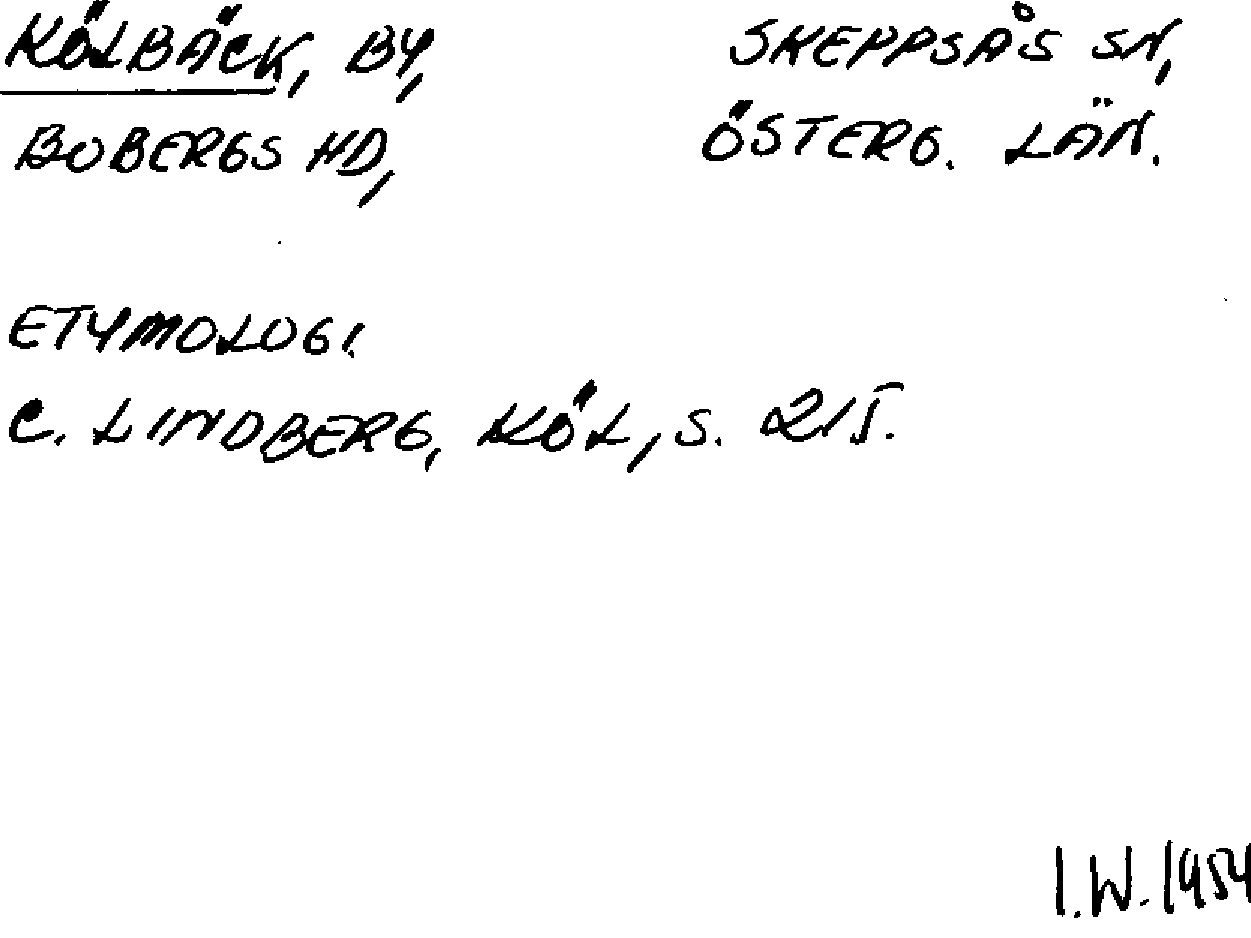 KÖLBÄCK, BY, SKEPPSÅS SN,
BOBERGS HD, ÖSTERG. LÄN.
ETYMOLOGI.
C. LINDBERG, KÖL, S. 215.
I.W. 1954